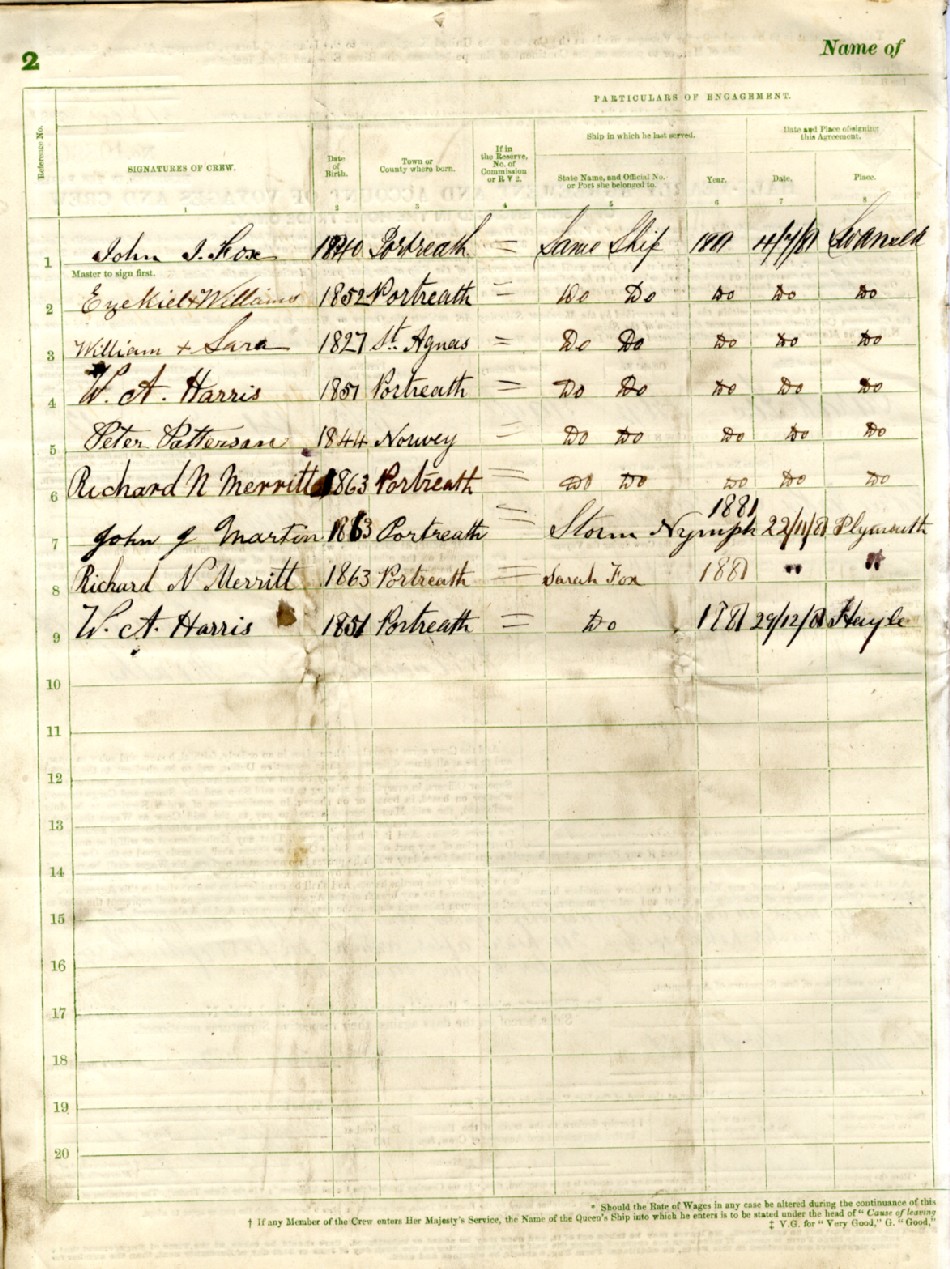 2
Name of
PARTICULARS OF ENGAGEMENT.
Reference No.
SIGNATURES OF CREW.
Date of Birth.
Town or County where born.
If in the Reserve, No. of Commission or R V 2.
Ship in which he last served.
Date and Place of signing this Agreement.
State Name, and Official No. or Port she belonged to.
Year.
Date.
Place.
1 2 3 4 5 6 7 8
1 John J. 1840 Portreath = Same Ship 1881 Swansea
Master to sign first.
2 Ezekiel + Williams 1852 Portreath = Do Do Do Do Do
3 William + Sara 1827 St. Agnes = Do Do Do Do Do
4 W. A. Harris 1851 Portreath = Do Do Do Do Do
5 Peter Patterson 1844 Norwey = Do Do Do Do Do
6 Richard N Merritt 1863 Portreath = Do Do Do Do Do
7 John J Martin 1863 Portreath = Storm Nymph 1881 22/11/81 Plymouth
8 Richard N Merritt 1863 Portreath = Sarah Fox 1881 " "
9 W. A. Harris 1851 Portreath = Do 1881 29/12/81 Hayle
10
11
12
13
14
15
16
17
18
19
20
* Should the Rate of Wages in any case be altered during the continuance of this
† If any Member of the Crew enters Her Majesty's Service, the Name of the Queen's Ship into which he enters is to be stated under the head of "Cause of leaving
‡ V.G. for "Very Good," G. "Good,"